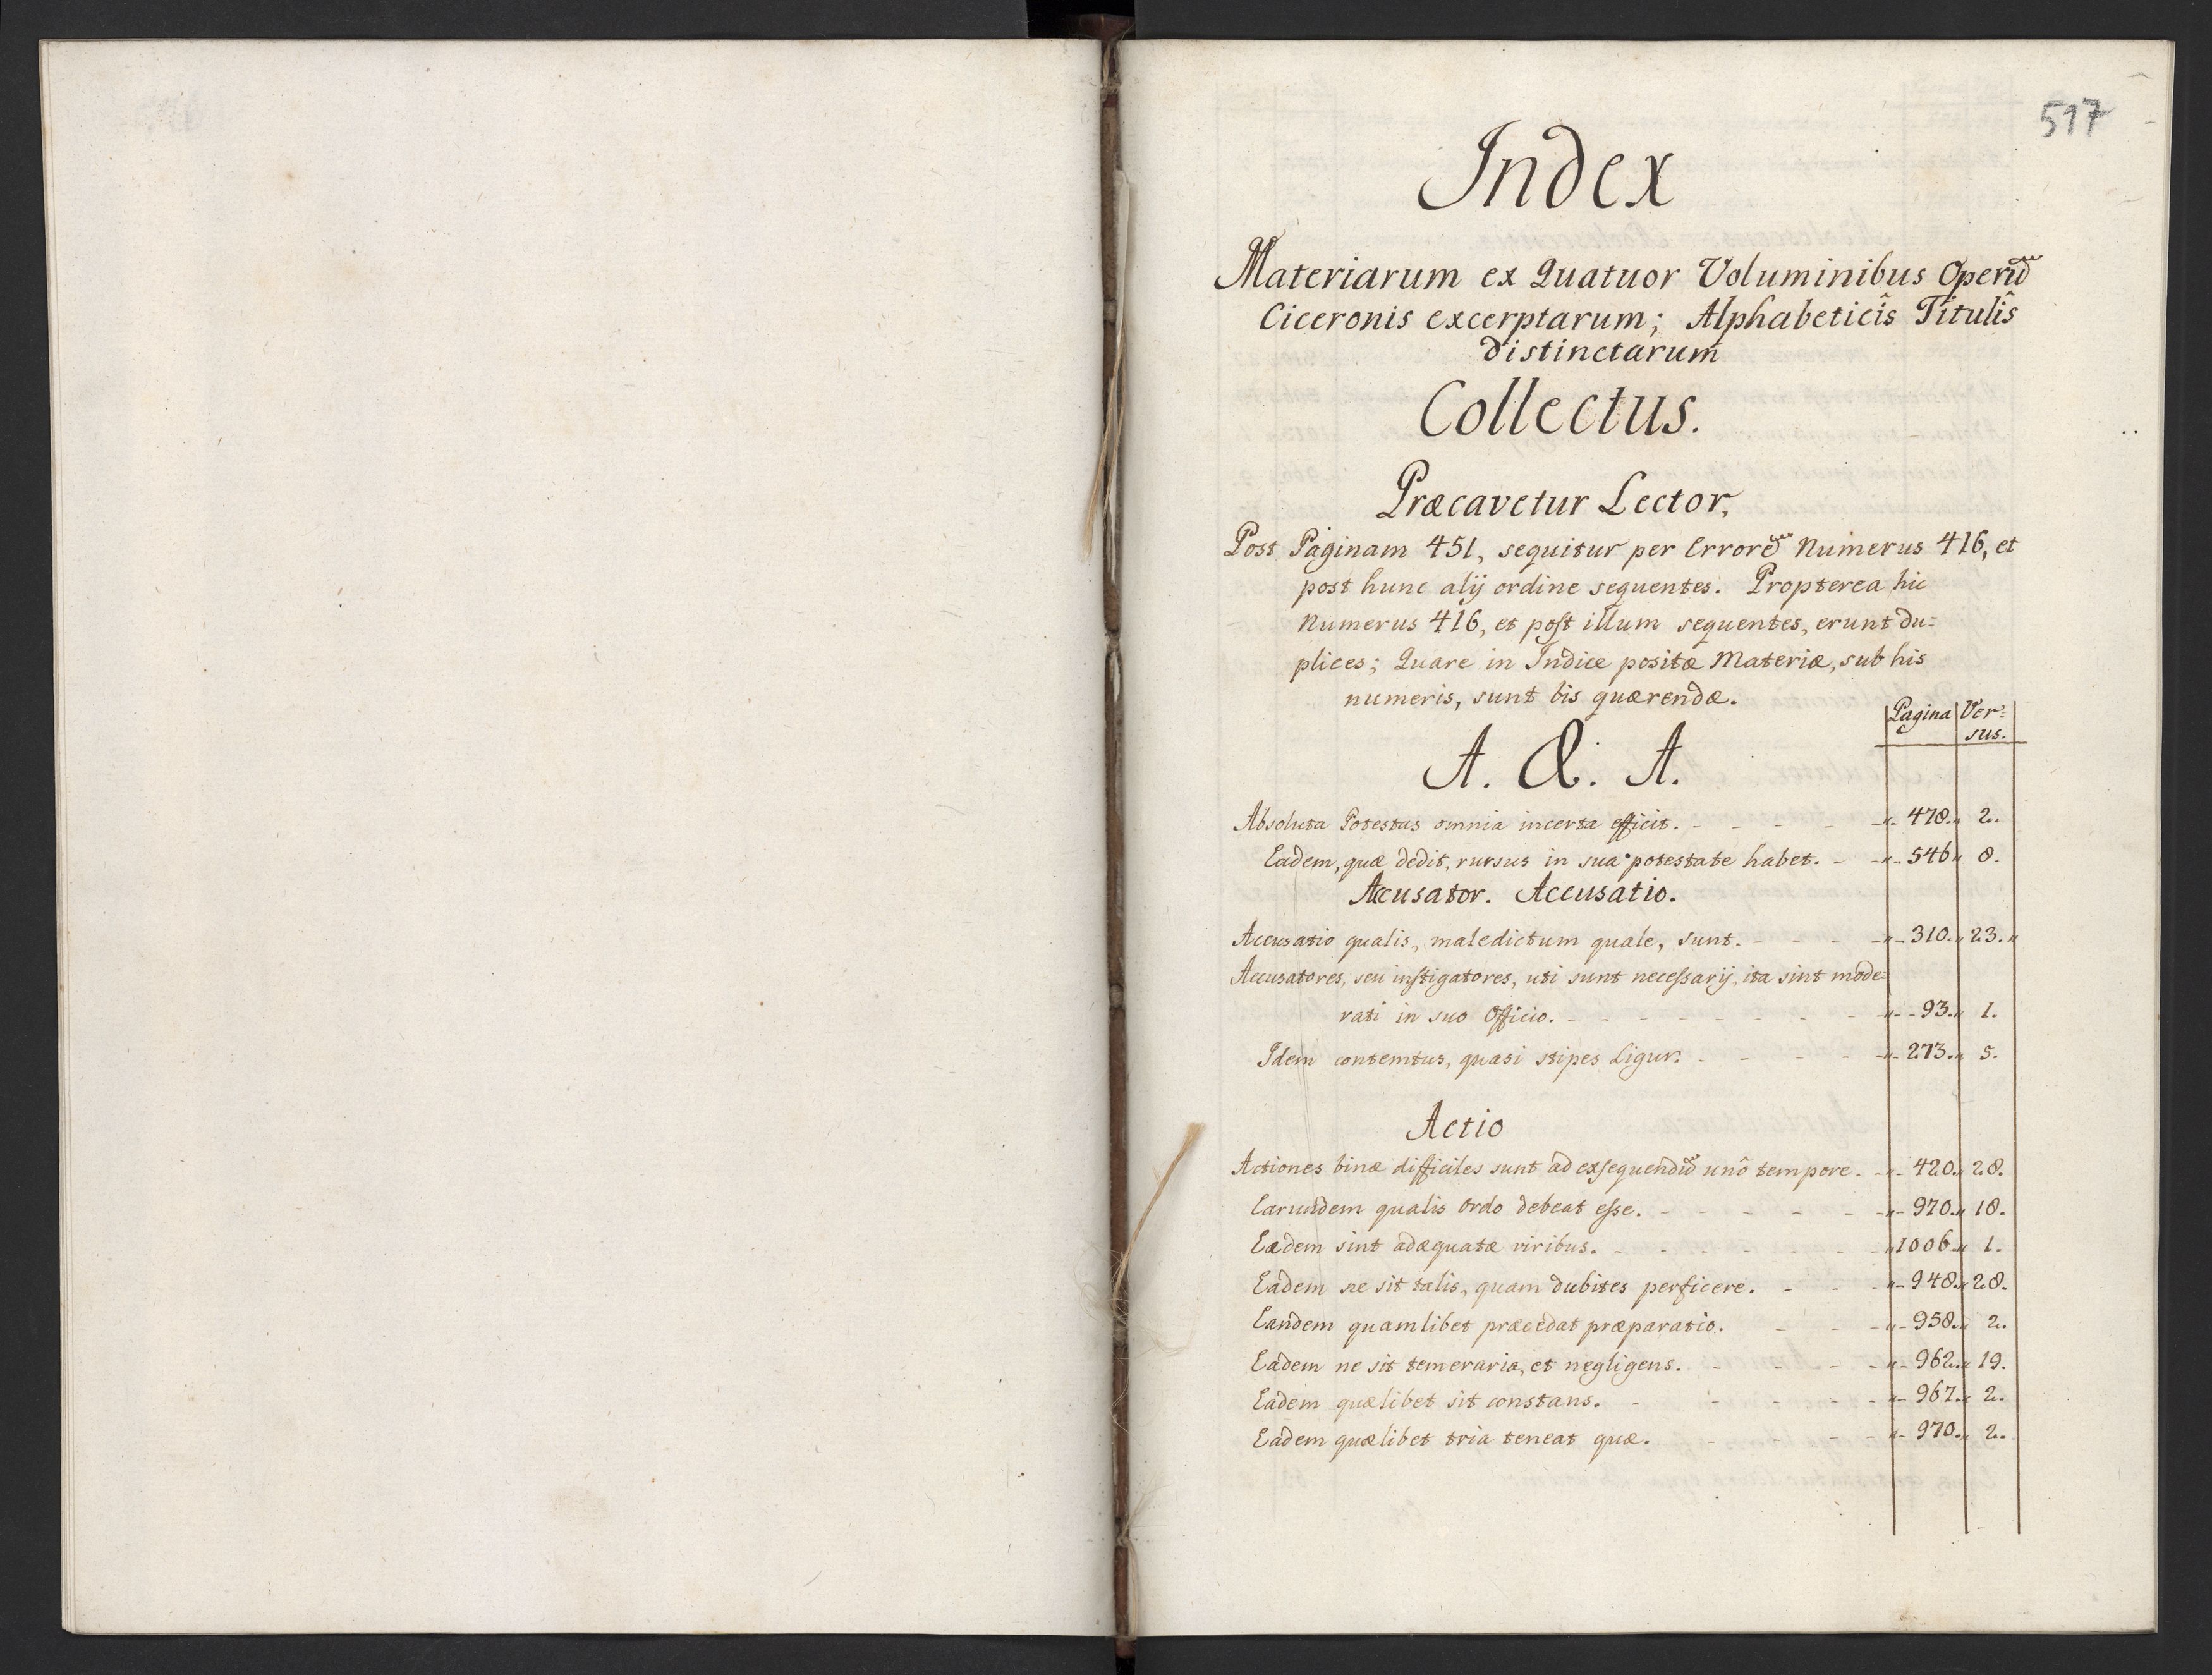 517
Index
Materiarum ex Quatuor Voluminibus Operũ
Ciceronis excerptarum; Alphabeticîs Titulîs
distinctarum
Collectus.
Præcavetur Lector,
Post Paginam 451, sequitur per Errorẽ Numerus 416, et
post hunc alij ordine sequentes. Propterea hic
Numerus 416, et post illum sequentes, erunt du=
plices; Quare in Indice positæ Materiæ, sub his
numeris, sunt bis quærendæ.
Pagina Ver=
sus.
A. A. A.
Absoluta Potestas omnia incerta efficit. 478. 2.
Eadem, quæ dedit, rursus in sua potestate habet. 546 8.
Accusator. Accusatio.
Accusatio qualis, maledictum quale, sunt. 310. 23.
Accusatores, seu instigatores, uti sunt necessarij, ita sint mode=
rati in suo Officio. 93. 1.
Idem contemtus, quasi stipes Ligur. 273. 5.
Actio
Actiones binæ difficiles sunt ad exsequendũ unô tempore. 420. 28.
Earundem qualis Ordo debeat esse. 970. 18.
Eædem sint adæquatæ viribus. 1006. 1.
Eadem ne sit talis, quam dubites perficere. 948. 28.
Eandem quamlibet præcedat præparatio. 958. 2.
Eadem ne sit temeraria, et negligens. 962. 19.
Eadem quælibet sit constans. 967. 2.
Eadem quælibet tria teneat quæ. 970. 2.